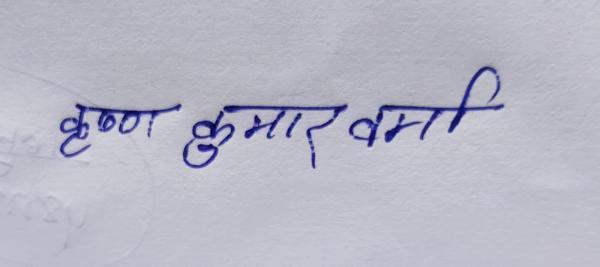 कृष्ण कुमार वर्मा